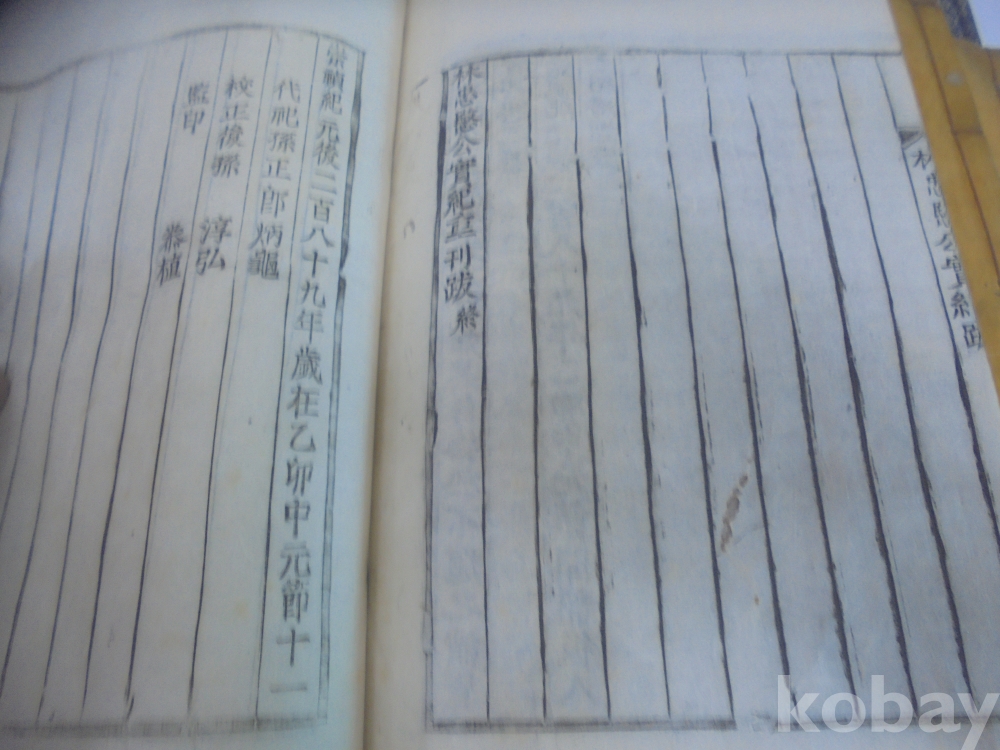 林忠愍公實紀跋
林忠愍公實紀立刊跋終
崇禎紀元後二百八十九年歲在乙卯中元節十一
代祀孫正郎炳龜
校正後孫 淳弘
監印 植
kobay